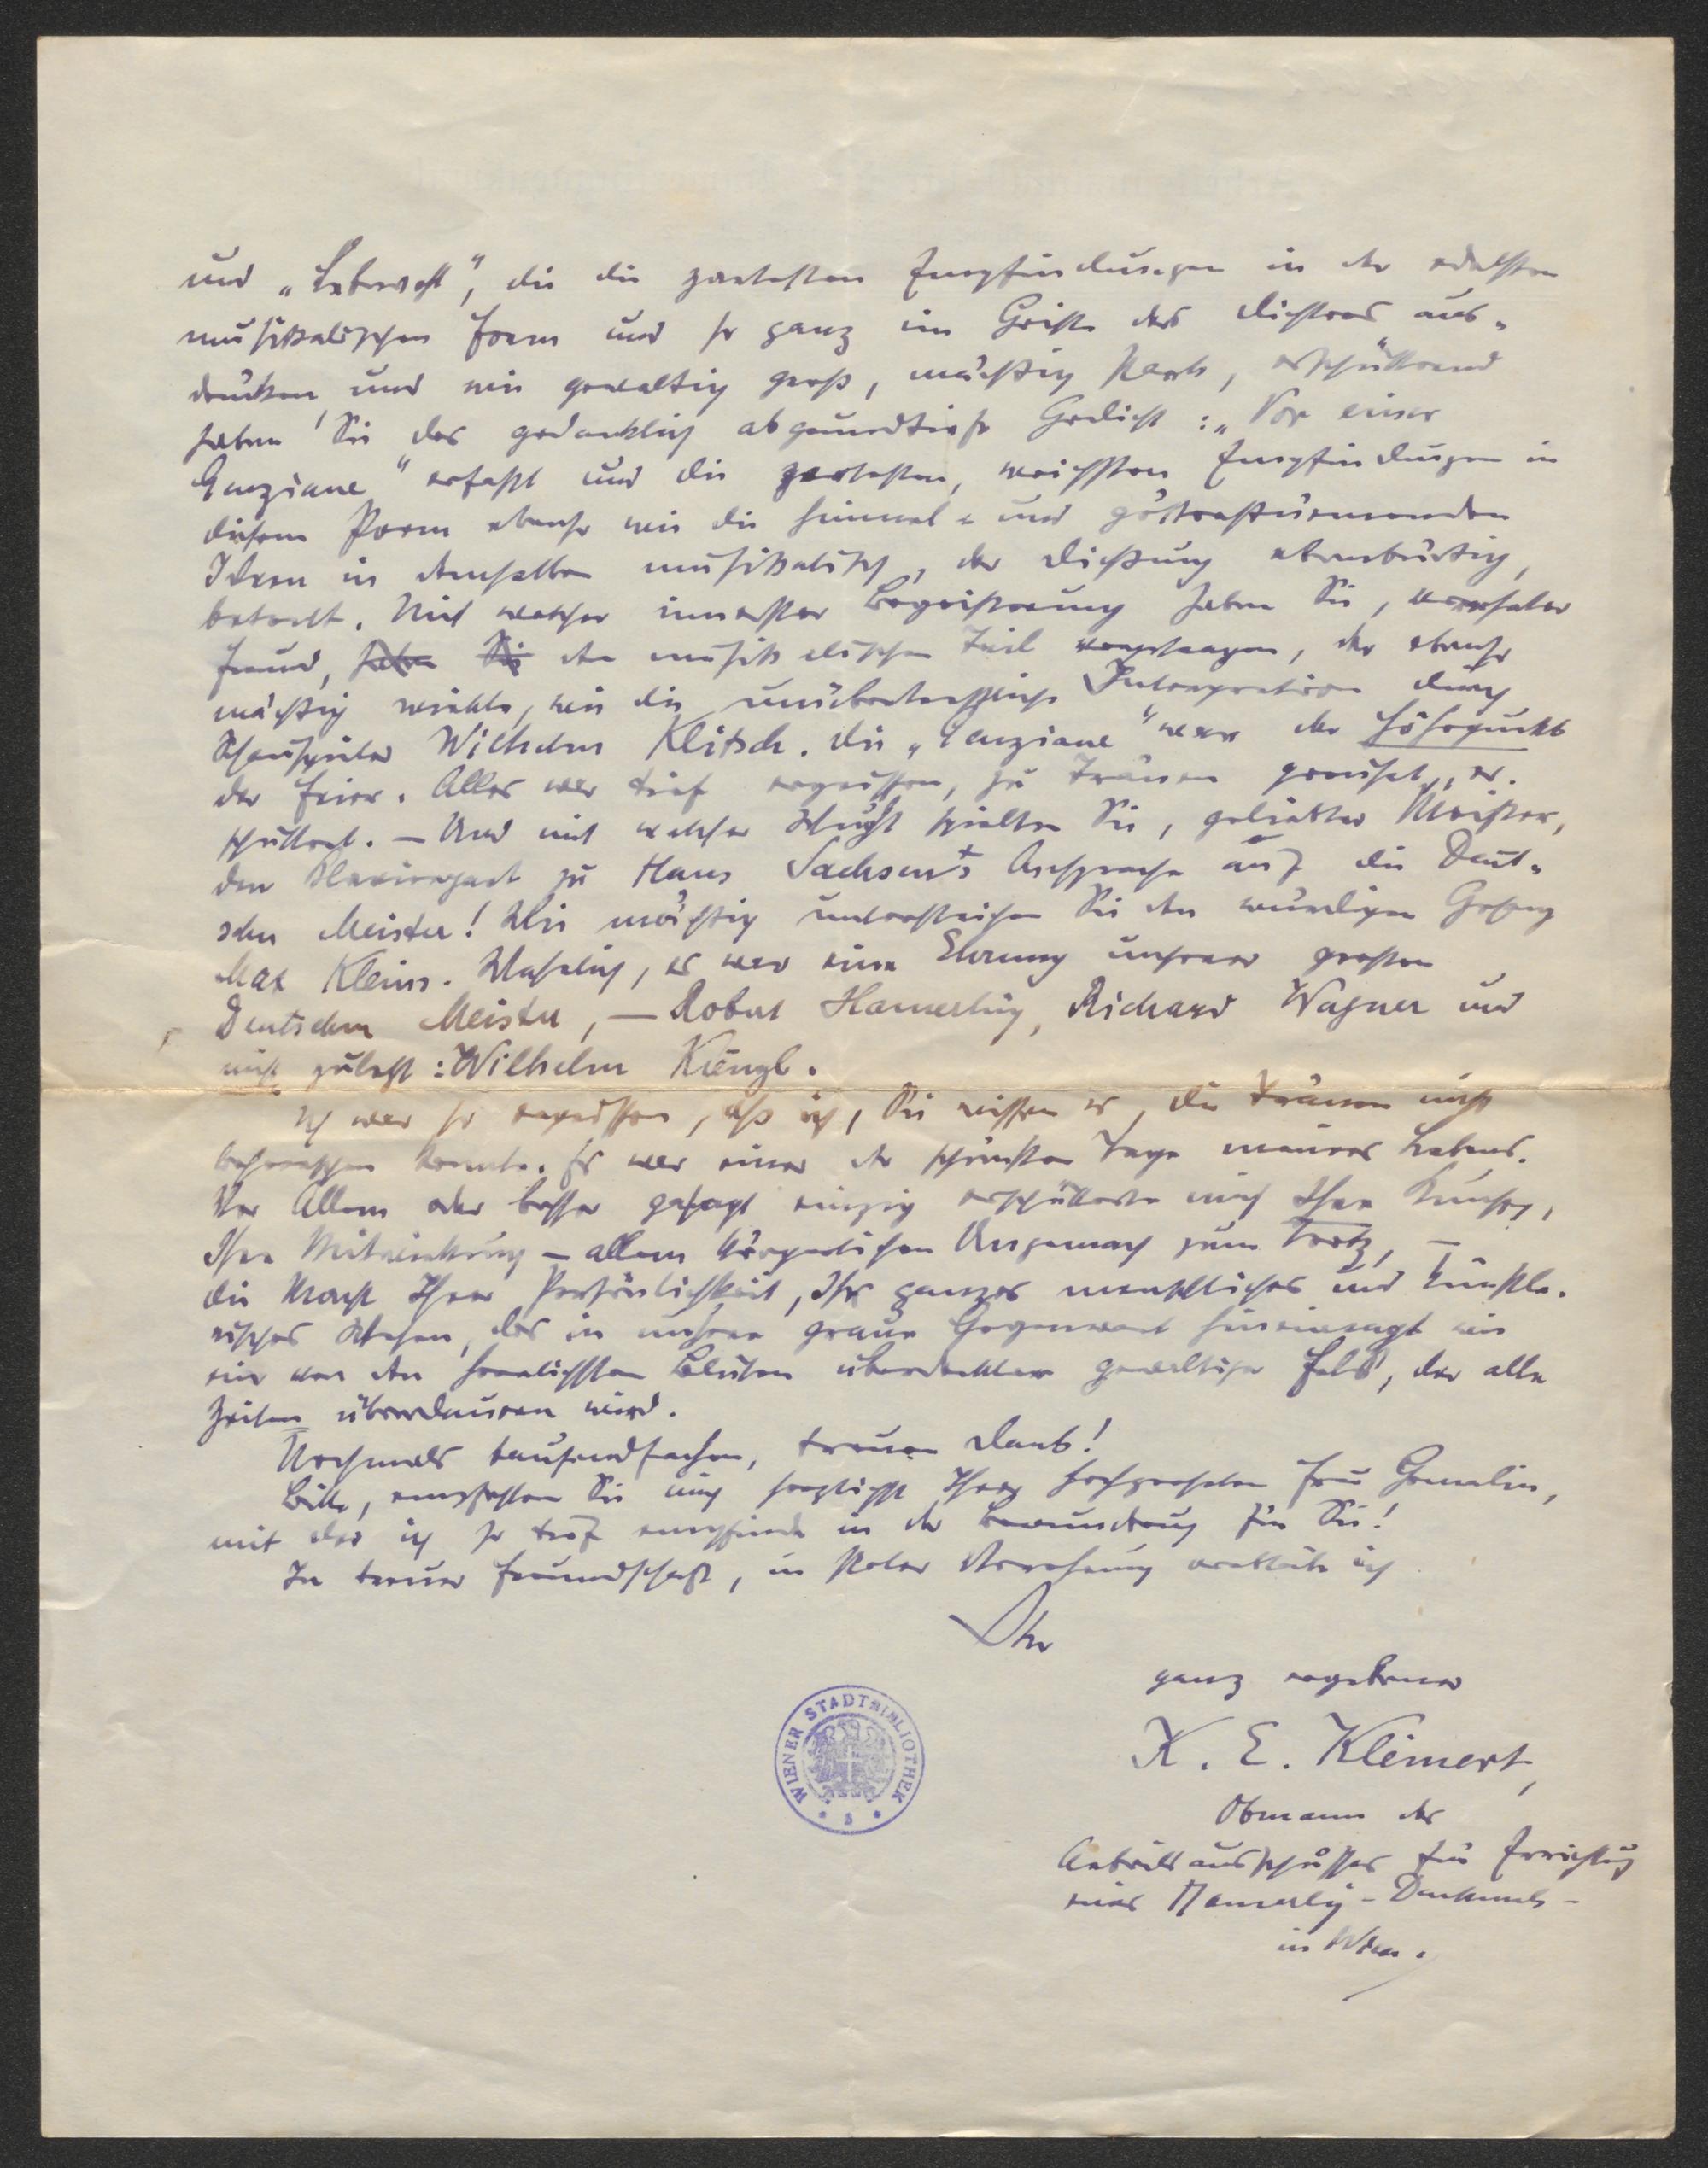 und „Lebewohl“, die die zartesten Empfindungen in der edelsten
musikalischen Form und so ganz im Geiste des Dichters aus-
drücken und wie gewaltig groß, mächtig stark, erschütternd
haben Sie das gedanklich abgrundtiefe Gedicht: „Vor einer
Genziane“ erfaßt und die zartesten, weichsten Empfindungen in
diesem Poem ebenso wie die himmel- und götterstürmenden
Ideen in demselben musikalisch, der Dichtung ebenbürtig,
betont. Mit welcher innerster Begeisterung haben Sie, verehrter
Freund, haben Sie den musikalischen Teil vorgetragen, der ebenso
mächtig wirkte, wie die unübertreffliche Interpretation durch
Schauspieler Wilhelm Klitsch. Die „Genziane“ war der Höhepunkt
der Feier. Alles war tief ergriffen, zu Tränen gerührt, er-
schüttert. – Und mit welcher Wucht spielten Sie, geliebter Meister,
den Klavierpart zu Hans Sachsens Ansprache auf die Deut-
schen Meister! Wie mächtig unterstrichen Sie den würdigen Gesang
Max Kleins. Wahrlich, es war eine Ehrung unserer großen
Deutschen Meister, – Robert Hamerling, Richard Wagner und
nicht zuletzt: Wilhelm Kienzl.
Ich war so ergriffen, daß ich, Sie wissen es, die Tränen nicht
beherrschen konnte. Es war einer der schönsten Tage meines Lebens.
Vor Allem oder besser gesagt einzig erschütterte mich Ihre Kunst,
Ihre Mitwirkung – allem körperlichen Ungemach zum Trotz, –
die Macht Ihrer Persönlichkeit, Ihr ganzes menschliches und künstle-
risches Wesen, das in unsere graue Gegenwart hineinragt wie
ein von den herrlichsten Blüten überdeckter gewaltiger Fels, der alle
Zeiten überdauern wird.
Nochmals tausendfachen, treuen Dank!
Bitte, empfehlen Sie mich herzlichst Ihrer hochverehrten Frau Gemalin,
mit der ich so tief empfinde in der Bewunderung für Sie!
In treuer Freundschaft, in steter Verehrung verbleibe ich
Ihr
ganz ergebener
K. E. Klimert,
Obmann des
Arbeitsausschusses für Errichtung
eines Hamerling-Denkmals
in Wien.
WIENER STADTBIBLIOTHEK